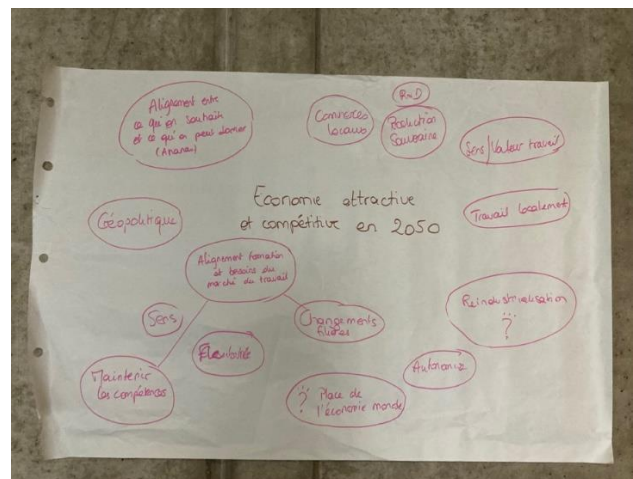 Alignement entre
ce qu'on souhaite
et ce qu'on peut donner
Commerces
locaux
R&D
Production
Souveraine
Sens/Valeur travail
Géopolitique
Economie attractive
et compétitive en 2050
Travail localement
Alignement formation
et besoins du
marché du travail
Sens
Changements
filières
Réindustrialisation
?
Maintenir
les compétences
? Place de
l'économie monde
Autonomie